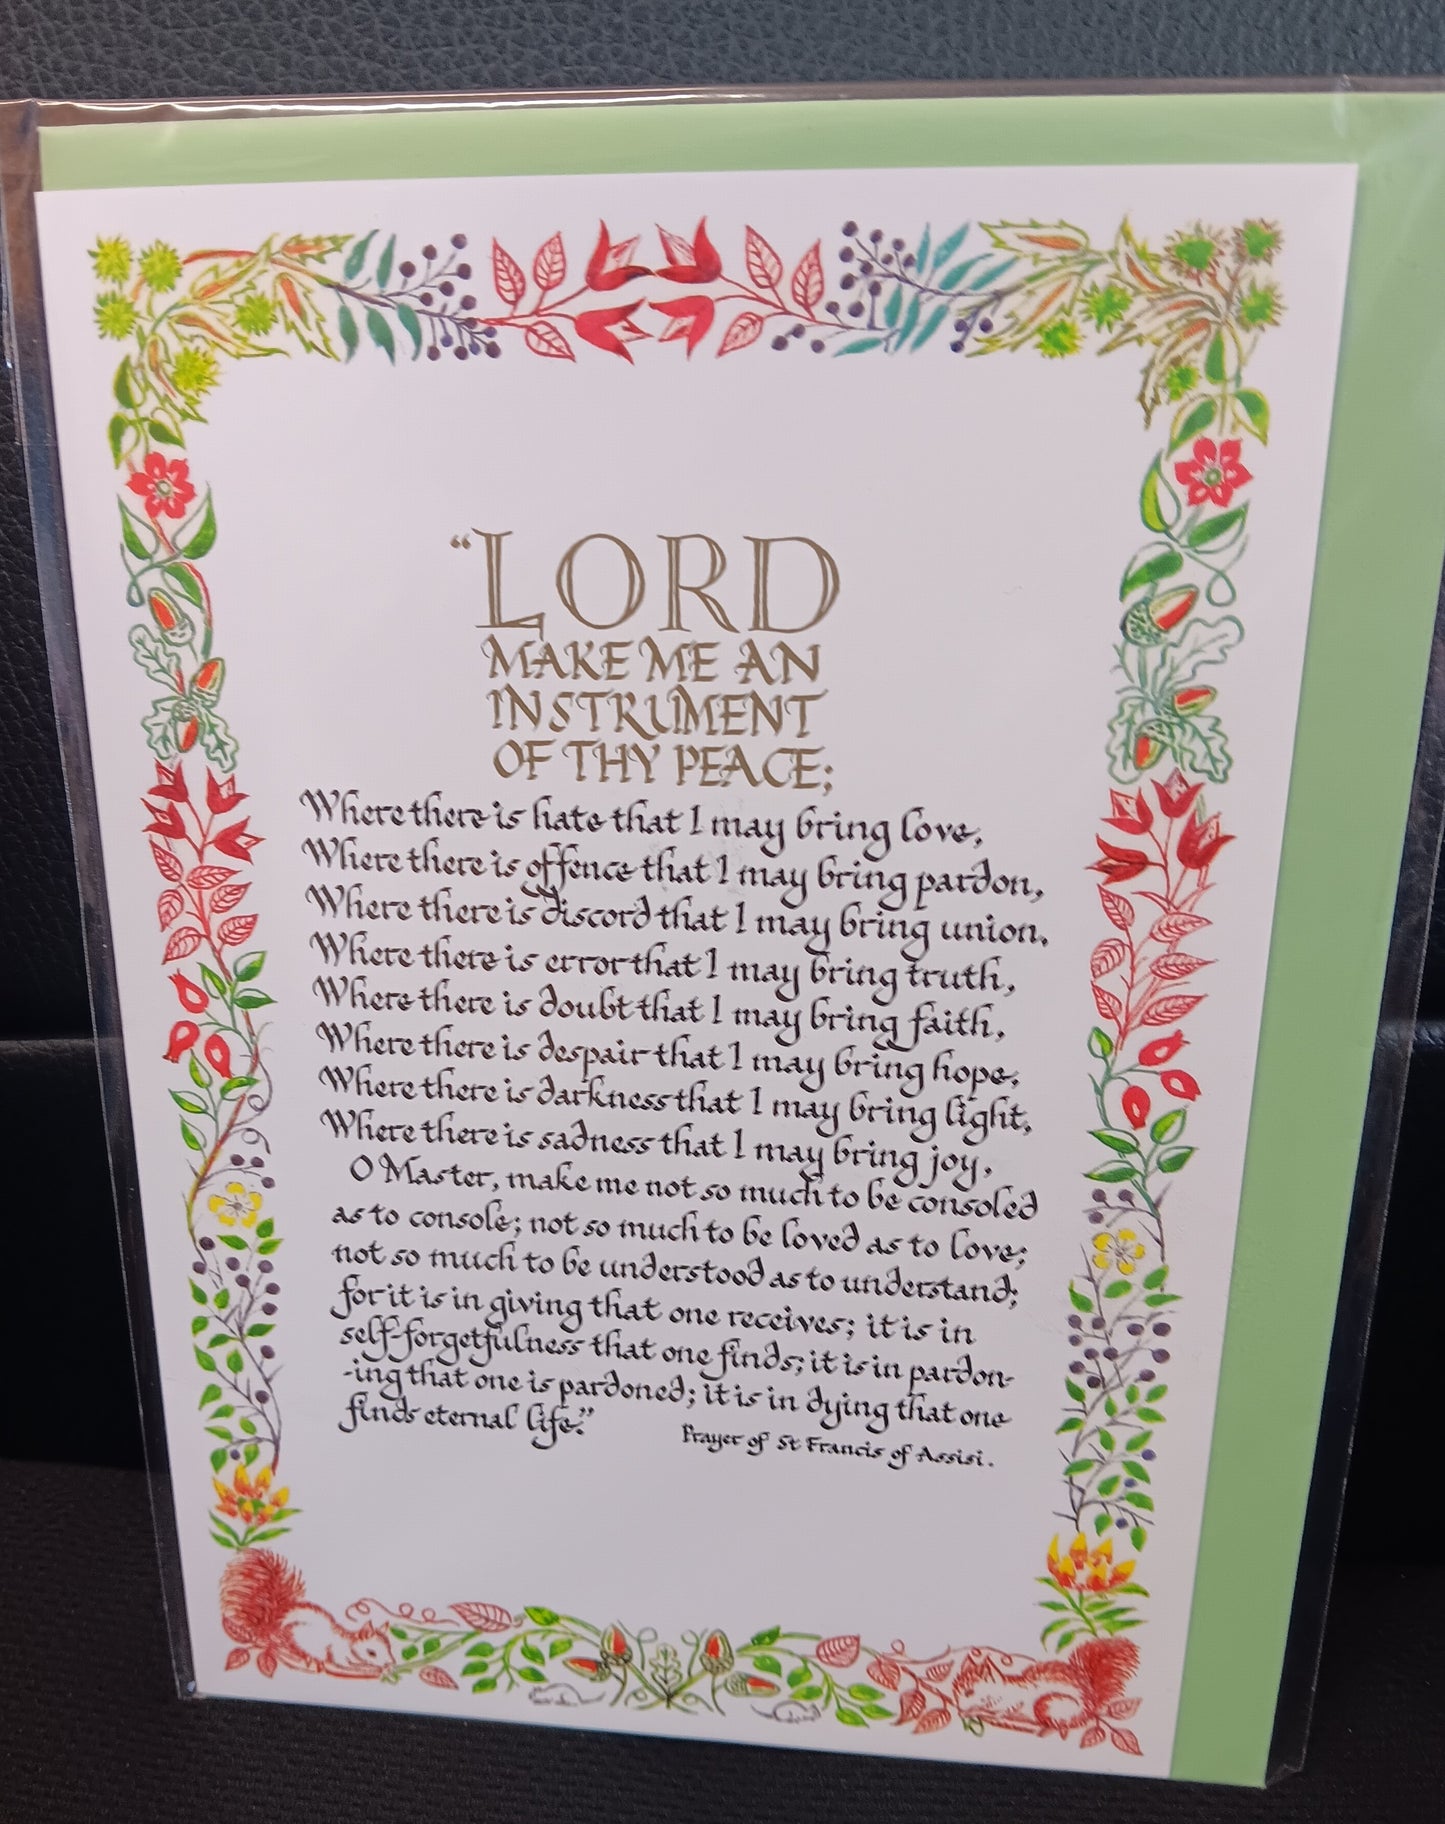 “LORD
MAKE ME AN
INSTRUMENT
OF THY PEACE;
Where there is hate that I may bring love,
Where there is offence that I may bring pardon,
Where there is discord that I may bring union,
Where there is error that I may bring truth,
Where there is doubt that I may bring faith,
Where there is despair that I may bring hope,
Where there is darkness that I may bring light,
Where there is sadness that I may bring joy,
O Master, make me not so much to be consoled
as to console; not so much to be loved as to love;
not so much to be understood as to understand;
for it is in giving that one receives; it is in
self-forgetfulness that one finds; it is in pardon-
-ing that one is pardoned; it is in dying that one
finds eternal life.”
Prayer of St Francis of Assisi.